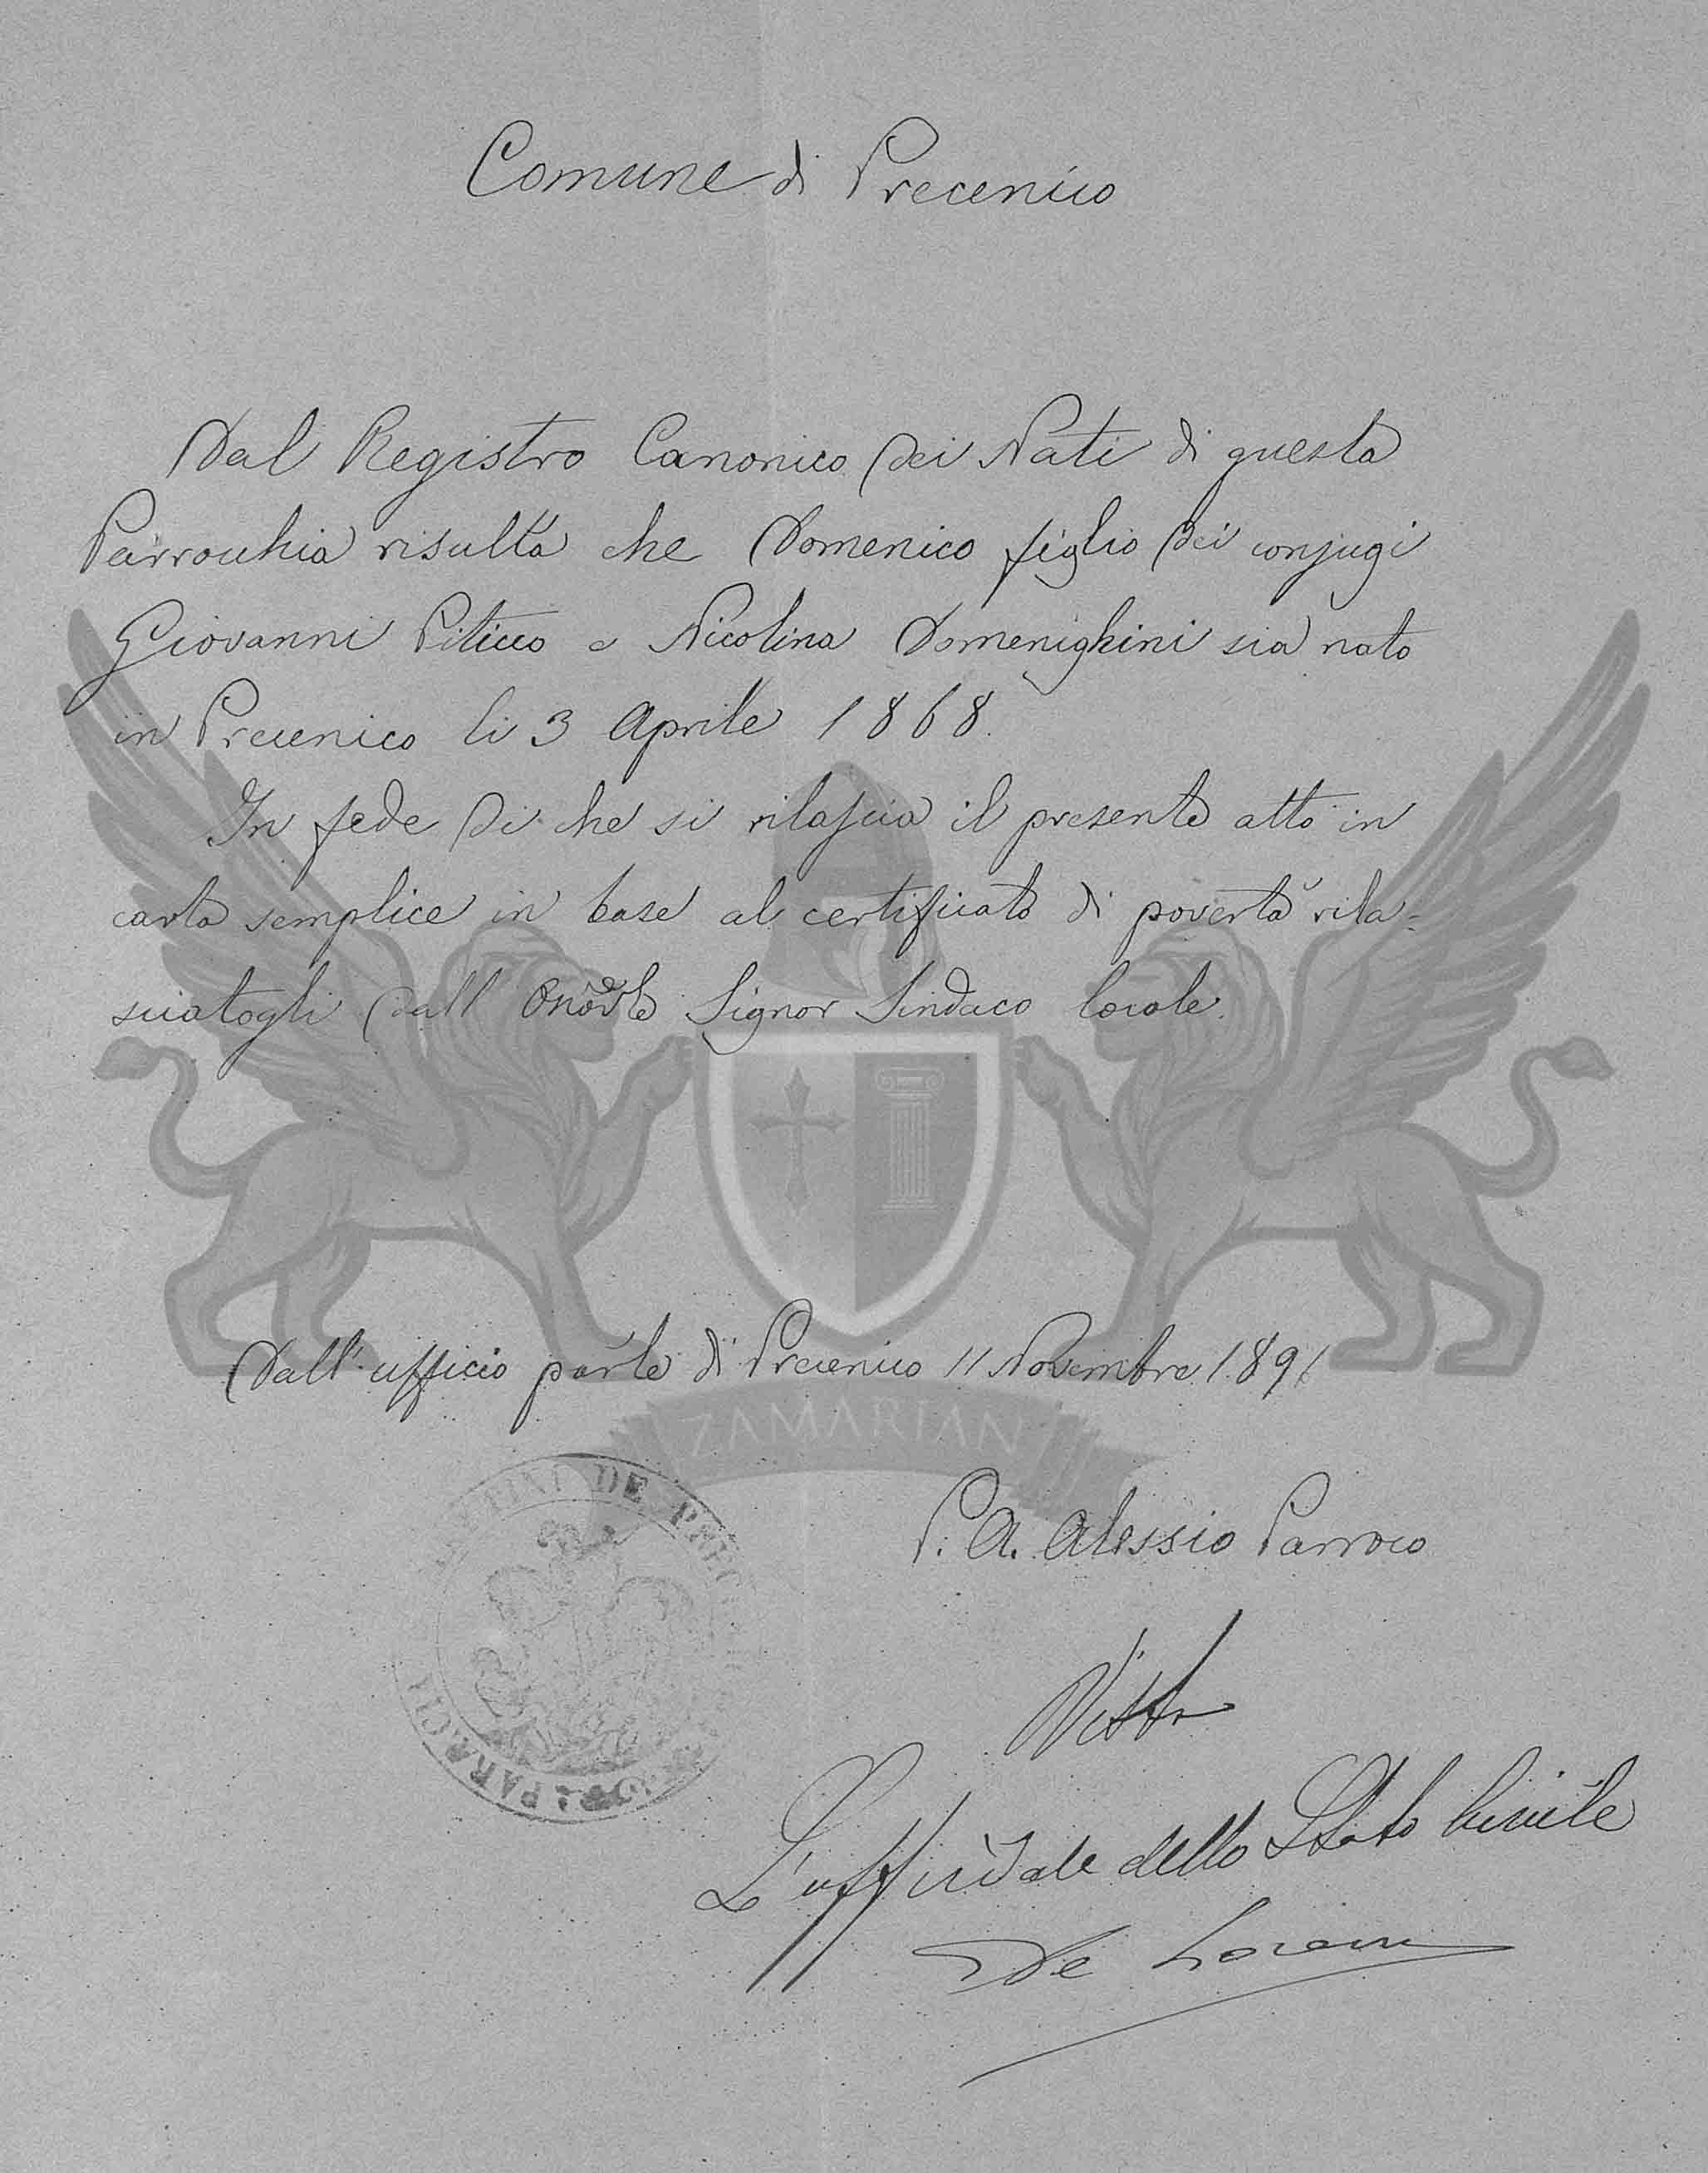 Comune di Precenico
Dal Registro Canonico dei Nati di questa
Parrochia risulta che Domenico figlio dei conjugi
Giovanni Piticco e Nicolina Domenighini sia nato
in Precenico li 3 Aprile 1868.
In fede di che si rilascia il presente atto in
carta semplice in base al certificato di povertà rila-
sciatogli dall' Onor.le Signor Sindaco locale.
Dall' ufficio parle di Precenico 11 Novembre 1891
ZAMARIAN
P. A. Alessio Parroco
DE PREC
PAROCH
Visto
L'uffiziale dello Stato Civile
De